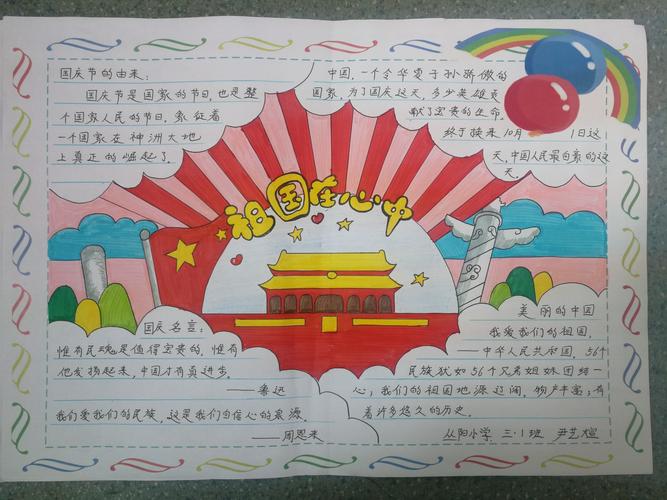 国庆节的由来:
国庆节是国家的节日,也是整
个国家人民的节日,象征着
一个国家在神洲大地
上真正的崛起了.
中国,一个令华夏子孙骄傲的
国家,为了国庆这天,多少英雄贡
献了宝贵的生命.
终于换来10月 1日这
天,中国人民最自豪的这
天.
祖国在心中
国庆名言:
惟有民魂是值得宝贵的,惟有
他发扬起来,中国才有真进步.
——鲁迅
我们爱我们的民族,这是我们自信心的泉源.
——周恩来
美丽的中国
我爱我们的祖国,
——中华人民共和国,56个
民族犹如56个兄弟姐妹团结一
心;我们的祖国地源辽阔,物产丰富;有
着许多悠久的历史.
丛阳小学 三·1班 尹艺煊